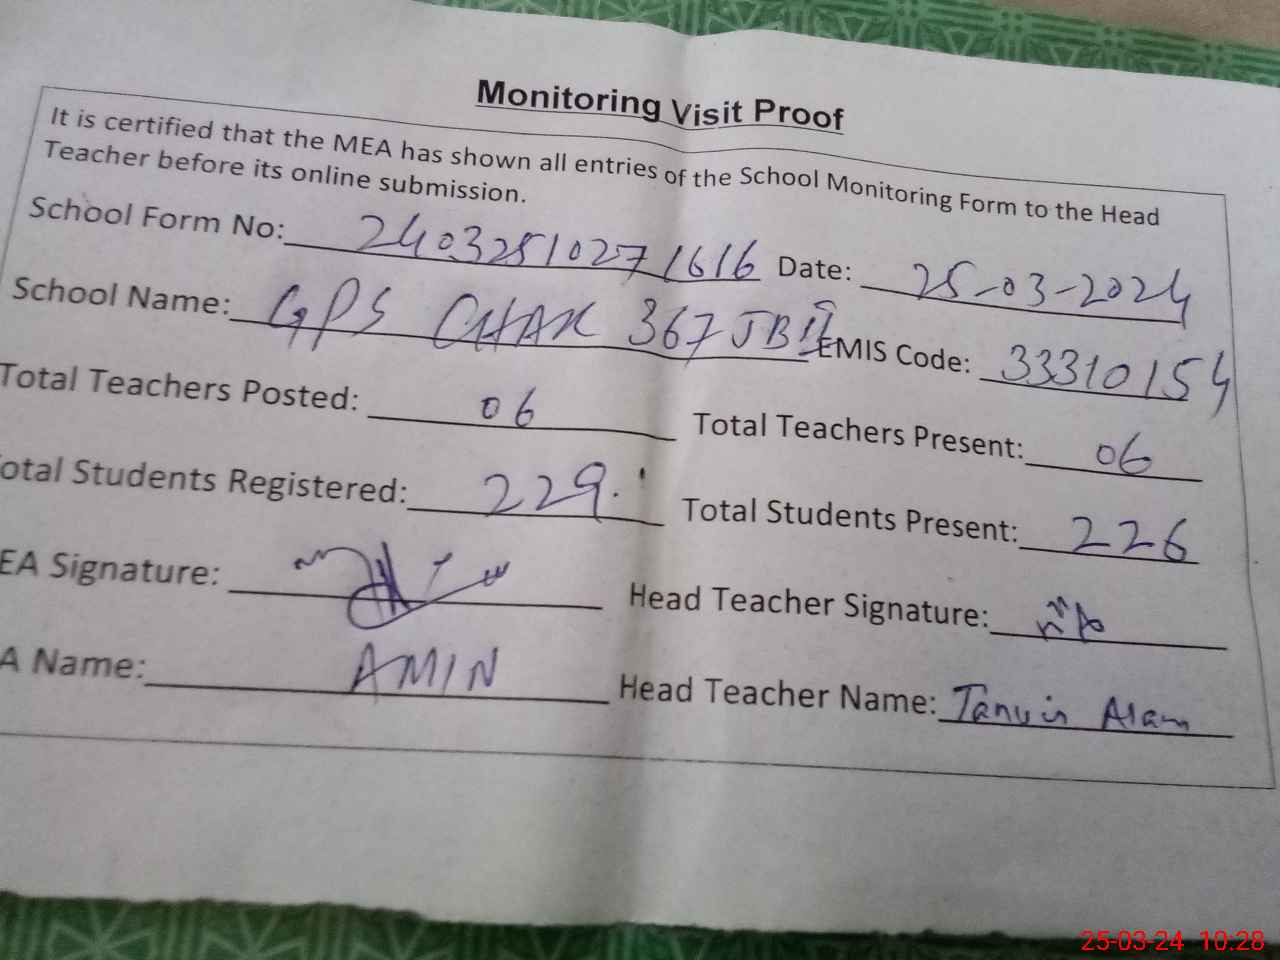 Monitoring Visit Proof
It is certified that the MEA has shown all entries of the School Monitoring Form to the Head
Teacher before its online submission.
School Form No: 24032510271616 Date: 25-03-2024
School Name: GPS CHAK 367 JB II EMIS Code: 33310154
Total Teachers Posted: 06 Total Teachers Present: 06
otal Students Registered: 229. Total Students Present: 226
EA Signature: Head Teacher Signature:
A Name: AMIN Head Teacher Name: Tanvir Alam
25-03-24 10:28